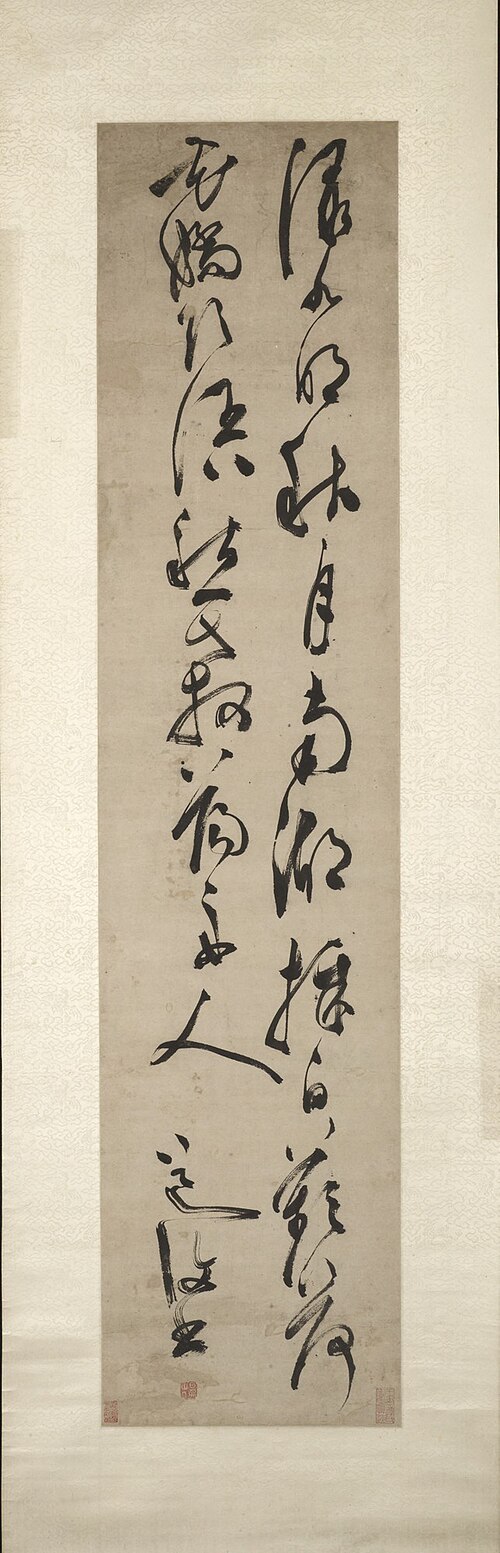 淥水明秋月南湖採白蘋荷
花嬌欲語愁殺蕩舟人
道復書